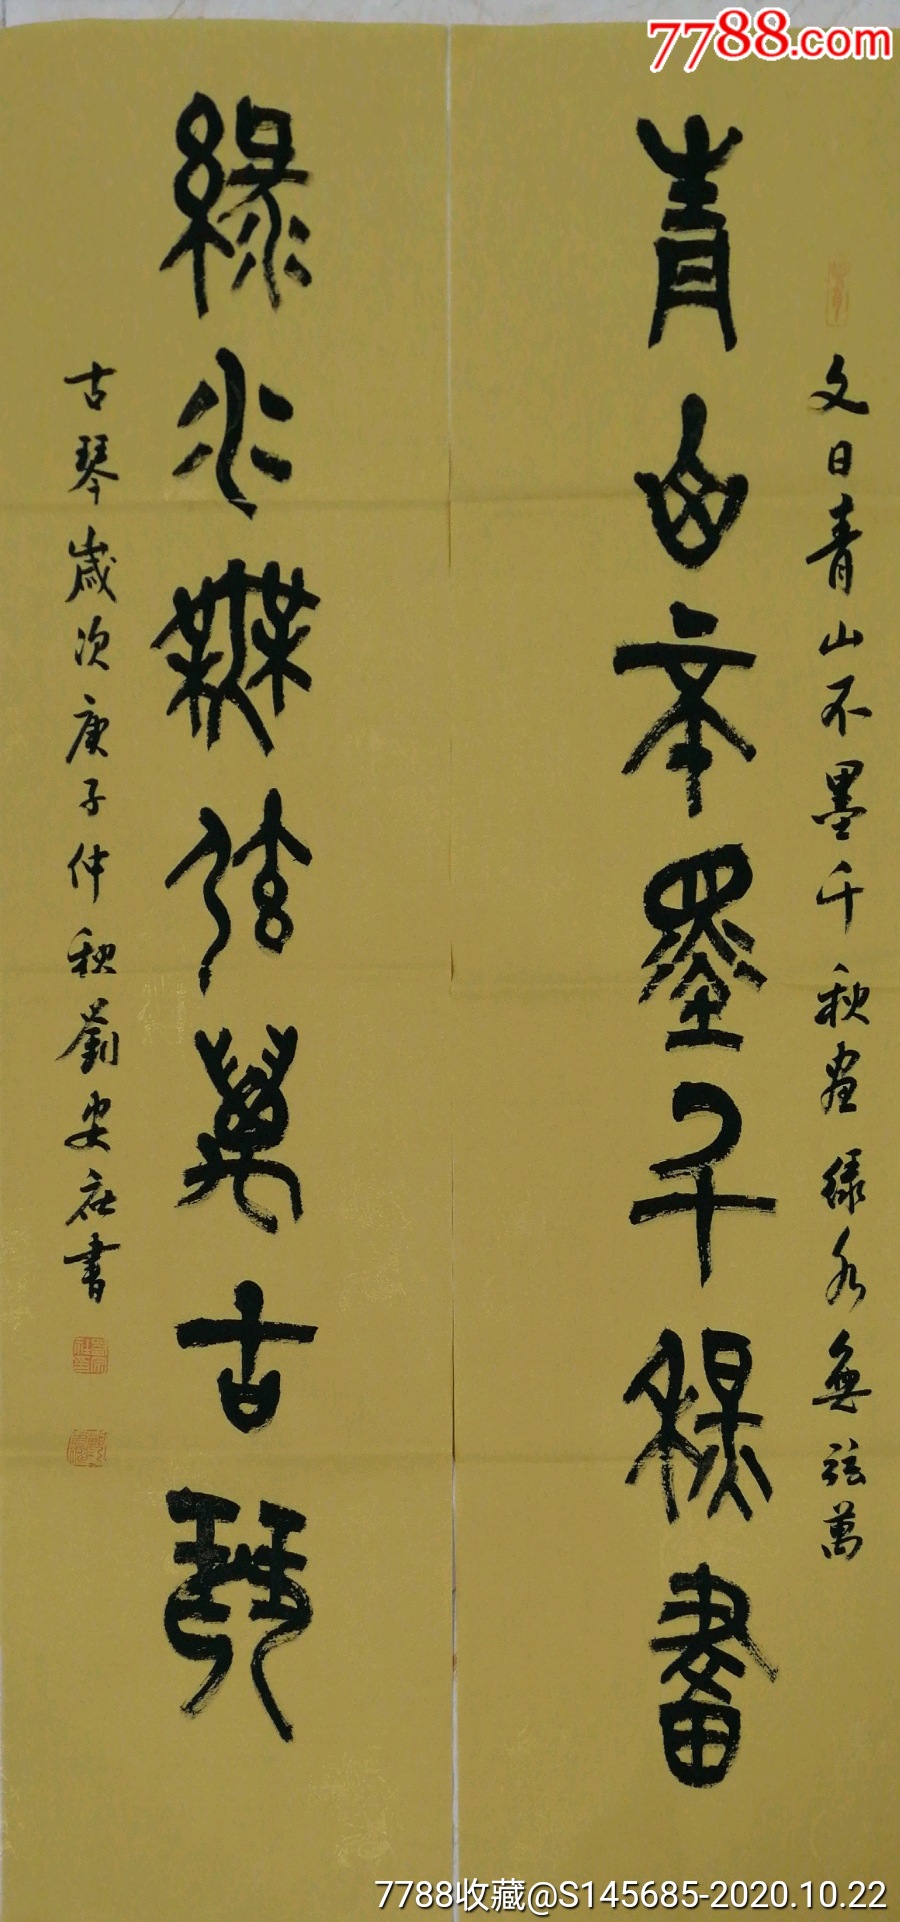 7788.com
文曰青山不墨千秋画绿水無弦萬
青山不墨千秋畫
綠水無弦萬古琴
古琴歲次庚子仲秋劉安在書
7788收藏@S145685-2020.10.22